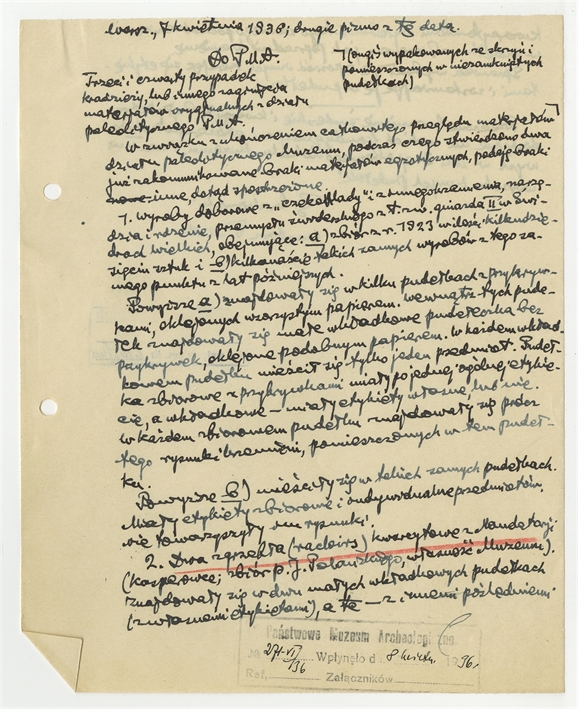 Warsz., 7 kwietnia 1936; drugie pismo z tą datą.
Do P.M.A.
7 (ongiś wypakowanych ze skrzyń i
pomieszczonych w niezamkniętych
pudełkach)
Trzeci i czwarty przypadek
kradzieży, lub innego zaginięcia
materjałów oryginalnych z działu
paleolitycznego P.M.A.
W związku z ukończeniem całkowitego przeglądu materjałów
działu paleolitycznego Muzeum, podczas czego stwierdzono dwa
już zakomunikowane braki materjałów egzotycznych, podaję braki
inne, dotąd spostrzeżone.
1. wyroby doborowe z "czekolady" i z innego krzemienia, narzę-
dzia i rdzenie, przemysłu świderskiego z t. zw. gniazda II w Świ-
drach Wielkich, obejmujące: a) zbiór z r. 1923 w ilości kilkudzie-
sięciu sztuk i b) kilkanaście takich samych wyrobów z tego sa-
mego punktu z lat późniejszych.
Powyższe a) znajdowały się w kilku pudełkach z przykryw-
kami, oklejonych wzorzystym papierem. wewnątrz tych pude-
łek znajdowały się małe wkładkowe pudełeczka bez
przykrywek, oklejone podobnym papierem. W każdem wkład-
kowem pudełku mieścił się tylko jeden przedmiot. Pudeł-
ka zbiorowe z przykrywkami miały po jednej ogólnej etykie-
cie, a wkładkowe – miały etykiety własne, lub nie.
w każdem zbiorowem pudełku znajdowały się prócz
tego rysunki krzemieni, pomieszczonych w tem pudeł-
ku.
Powyższe b) mieściły się w takich samych pudełkach.
Miały etykiety zbiorowe i indywidualne przedmiotów.
nie towarzyszyły im rysunki.
2. Dwa zgrzebła (racloirs) kwarcytowe z Mandżurji
(Kasperowce; zbiór p. J. Polańskiego, własność Muzeum).
znajdowały się w dwu małych wkładkowych pudełkach
(z własnemi etykietami), a te – z innemi pośledniemi
Państwowe Muzeum Archeologiczne
№ 271-VI/36 Wpłynęło d. 8 kwietn. 1936 r.
Ref. Załączników